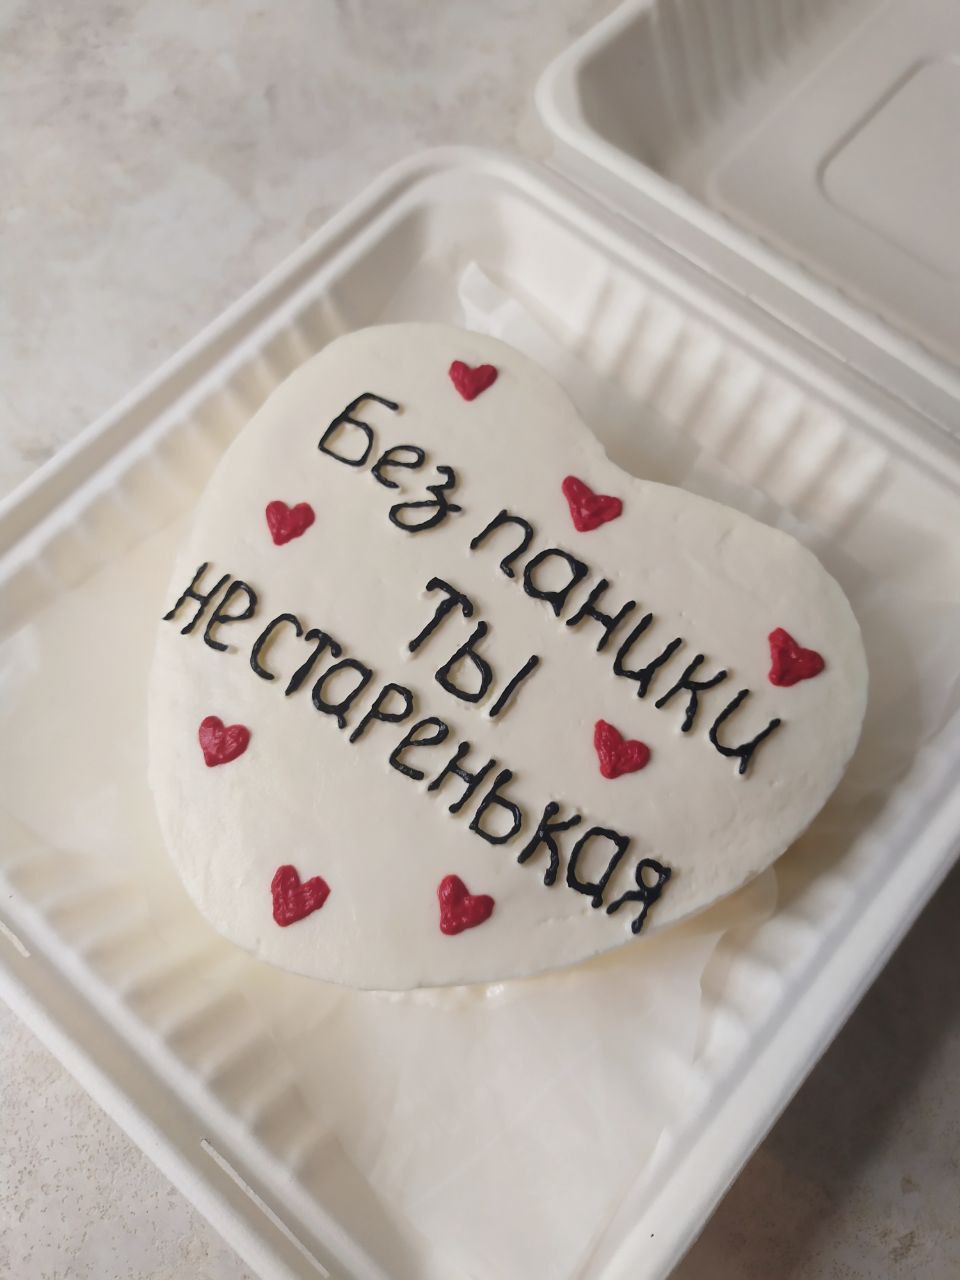 Без паники
ты
нестаренькая